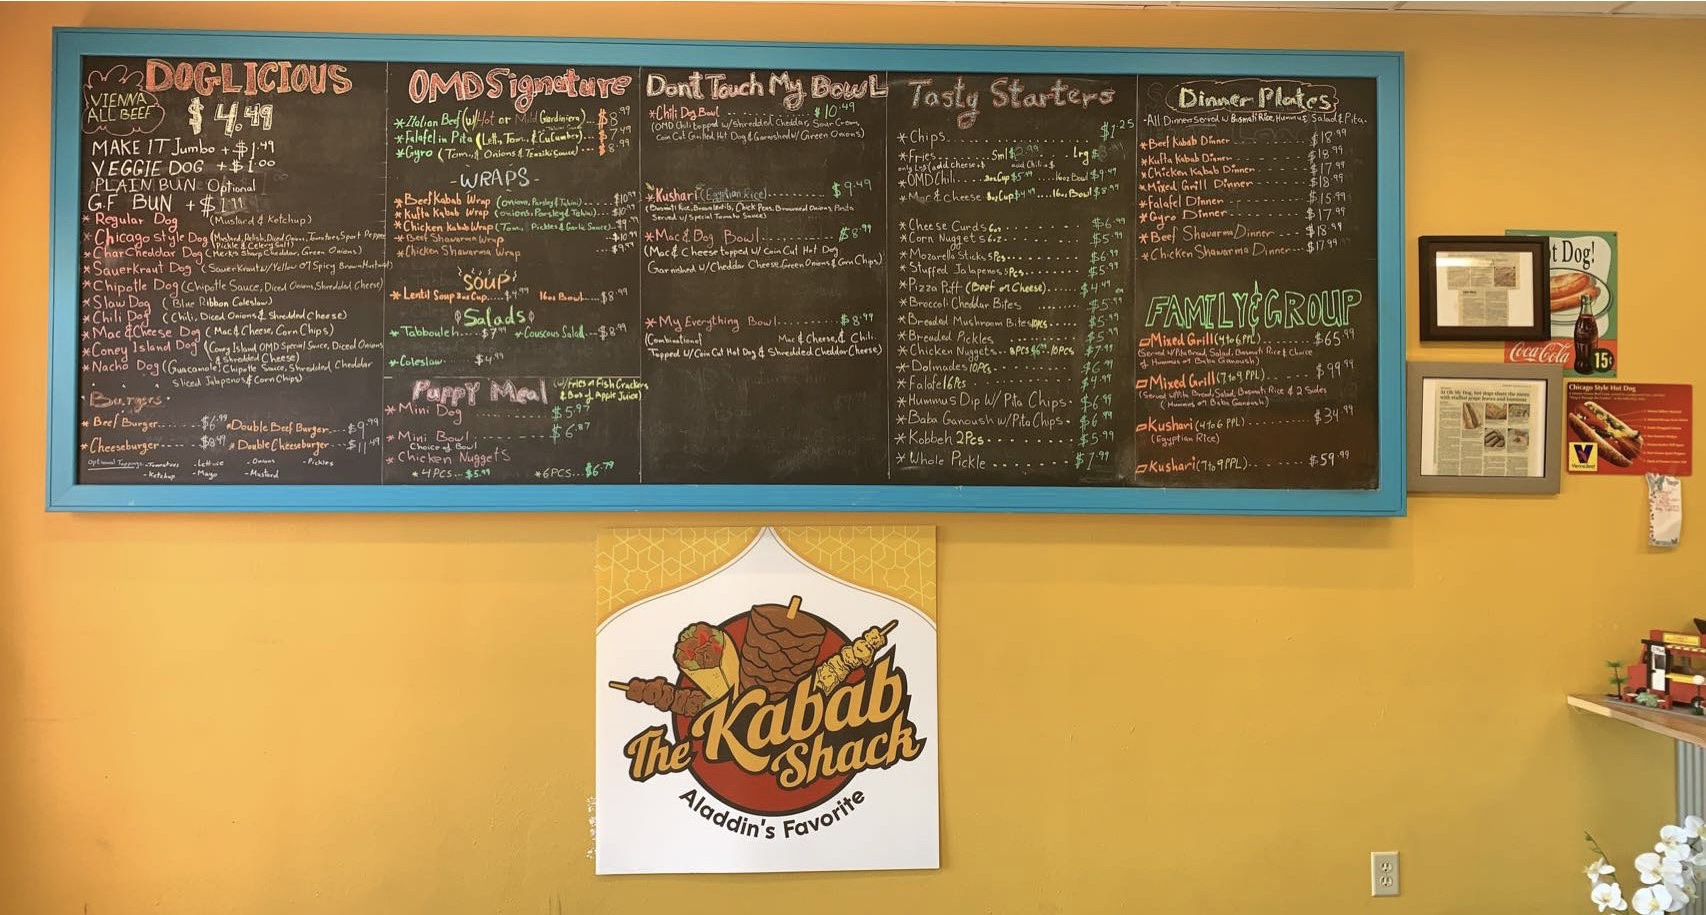 DOGLICIOUS
VIENNA
ALL BEEF
$4.49
MAKE IT Jumbo + $1.49
VEGGIE DOG + $1.00
PLAIN BUN Optional
G.F BUN + $1.99
* Regular Dog (Mustard & Ketchup)
* Chicago style Dog (Mustard, Relish, Diced Onion, Tomatoes, Sport Pepper
Pickle & Celery Salt)
* Char Cheddar Dog (Merkts Sharp Cheddar, Green Onions)
* Sauerkraut Dog (Sauerkraut w/Yellow or Spicy Brown Mustard
* Chipotle Dog (Chipotle Sauce, Diced Onions, Shredded Cheese)
* Slaw Dog (Blue Ribbon Coleslaw)
* Chili Dog (Chili, Diced Onions & Shredded Cheese)
* Mac & Cheese Dog (Mac & Cheese, Corn Chips)
* Coney Island Dog (Coney Island OMD Special Sauce, Diced Onions
& Shredded Cheese)
* Nacho Dog (Guacamole, Chipotle Sauce, Shredded Cheddar
Sliced Jalapenos & Corn Chips)
Burgers
* Beef Burger......$6.99 *Double Beef Burger....$9.99
* Cheeseburger.... *Double Cheeseburger....$11.49
Optional Toppings -Tomatoes -Lettuce -Onions -Pickles
-Ketchup -Mayo -Mustard
OMD Signature
* Italian Beef (w/Hot or Mild Giardiniera)...$8.99
* Falafel in Pita (Lett, Tom., & Cucumber)...$7.49
* Gyro (Tom., Onions & Tzaziki Sauce)....$8.99
-WRAPS-
* Beef Kabab Wrap (onions, Parsley & Tahini)......$10.99
* Kufta Kabab Wrap (onions, Parsley & Tahini)....$10.99
* Chicken Kabab Wrap (Tom., Pickles & Garlic Sauce)...$9.99
* Beef Shawarma Wrap ...$10.99
* Chicken Shawarma Wrap ...$9.99
SOUP
* Lentil Soup 8oz Cup....$4.99 16oz Bowl....$8.99
Salads
* Tabbouleh....$7.99 * Couscous Salad...$8.99
* Coleslaw $4.99
Puppy Meal (w/Fries or Fish Crackers
& Box of Apple Juice)
* Mini Dog ........ $5.97
* Mini Bowl ........ $6.87
Choice of Bowl
* Chicken Nuggets
* 4 PCS...$5.99 * 6 PCS...$6.79
Dont Touch My Bowl
* Chili Dog Bowl ........ $10.49
(OMD Chili topped w/Shredded Cheddar, Sour Cream,
Corn Cut Grilled Hot Dog & Garnished w/Green Onions)
* Kushari (Egyptian Rice)....... $9.49
(Basmati Rice, Brown Lentils, Chick Peas, Browned Onions, Pasta
Served w/ Special Tomato Sauce)
* Mac & Dog Bowl ........ $8.99
(Mac & Cheese topped w/ Coin Cut Hot Dog
Garnished w/Cheddar Cheese, Green Onions & Corn Chips)
* My Everything Bowl........ $8.99
(Combination! Mac & Cheese, & Chili.
Topped w/Coin Cut Hot Dog & Shredded Cheddar Cheese)
Tasty Starters
* Chips........ $1.25
* Fries..... Sml lrg
* OMD Chili.. 8oz Cup $5.99 ..16oz Bowl $9.49
* Mac & Cheese 8oz Cup $4.99 ..16oz Bowl $8.99
* Cheese Curds 6oz.......$6.99
* Corn Nuggets 6oz.......$5.99
* Mozarella Sticks 5Pcs......$6.99
* Stuffed Jalapenos 5Pcs......$5.99
* Pizza Puff (Beef or Cheese).....$4.49
* Broccoli Cheddar Bites......$5.99
* Breaded Mushroom Bites 10pcs....$5.99
* Breaded Pickles........$5.99
* Chicken Nuggets.. 8PCS $6.99..10PCs $7.99
* Dolmades 10PCs.......$6.99
* Falafel 6Pcs........$4.99
* Hummus Dip W/ Pita Chips.$6.99
* Baba Ganoush W/Pita Chips.$6.99
* Kobbeh 2Pcs........$5.99
* Whole Pickle........$1.99
Dinner Plates
-All Dinner Served w/ Basmati Rice, Hummus, Salad & Pita-
* Beef Kabab Dinner........$18.99
* Kufta Kabab Dinner........$18.99
* Chicken Kabab Dinner......$17.99
* Mixed Grill Dinner........$18.99
* Falafel Dinner........$15.99
* Gyro Dinner........$17.99
* Beef Shawarma Dinner.......$18.99
* Chicken Shawarma Dinner....$17.99
FAMILY & GROUP
Mixed Grill (4 to 6 PPL)......$65.99
(Served w/Pita Bread, Salad, Basmati Rice & Choice
of Hummus or Baba Ganoush)
Mixed Grill (7 to 9 PPL)......$99.99
(Served w/Pita Bread, Salad, Basmati Rice & 2 Sides
(Hummus or Baba Ganoush)
Kushari (4 to 6 PPL)......$34.99
(Egyptian Rice)
Kushari (7 to 9 PPL)......$59.99
The Kabab Shack
Aladdin's Favorite
ot Dog!
Coca-Cola
15¢
Chicago Style Hot Dog
V
Vienna Beef